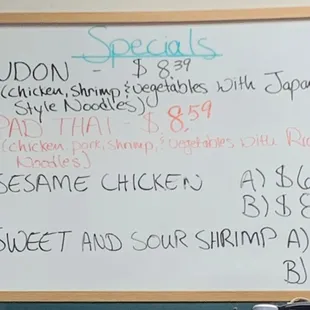 Specials
UDON - $8.39
(chicken, shrimp, & vegetables with Japan
Style Noodles)
PAD THAI - $8.59
(chicken, pork, shrimp, & vegetables with Ri
Noodles)
SESAME CHICKEN A) $6
B) $8
SWEET AND SOUR SHRIMP A)
B)